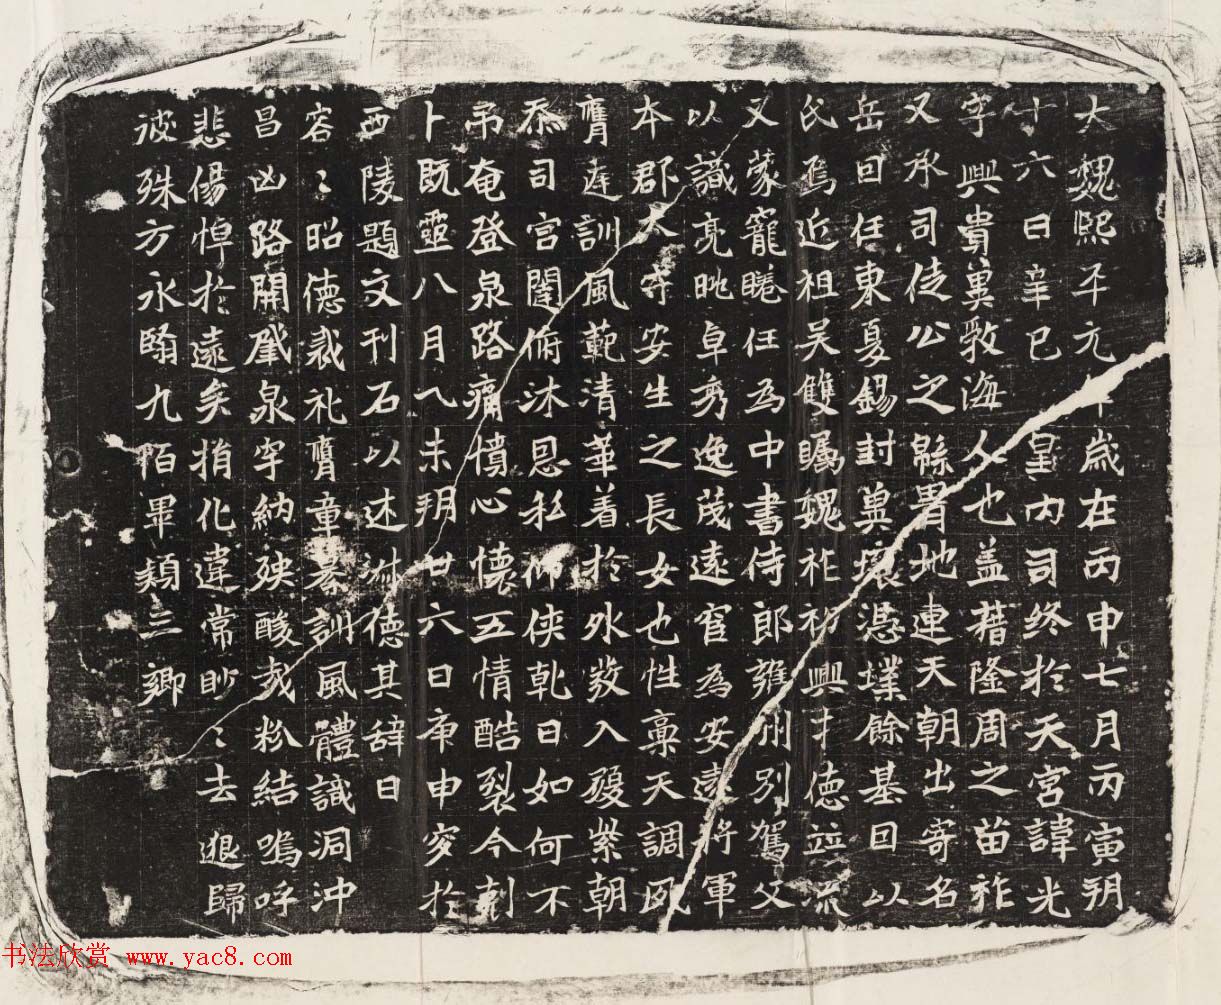 大魏熙平元年歲在丙申七月丙寅朔
十六日辛巳皇內司終於天宮諱光
字興貴冀敦海人也蓋藉隆周之苗祚
又承司徒公之緜胄地連天朝出寄名
岳回任東夏錫封冀壤憑堞餘基因以
氏焉近祖吳雙矚魏祚初興才德並流
又蒙寵睠任為中書侍郎雍州別駕父
以識亮眺卓秀逸茂遠官為安遠將軍
本郡太守安生之長女也性稟天調夙
膺
訓風範清華着於外敷入
紫朝
忝司宮闈俯沐恩私仰俠乾日如何不
弔奄登泉路痛憤心懷五情酷裂今剋
卜既靈八月乙未朔廿六日庚申窆於
西陵題文刊石以述
德其辭曰
容〻昭德
礼膺章綦訓風體識洞沖
昌凶路開
泉穸納殃酸哉粉結嗚呼
悲傷悼於遠矣捐化違常眇〻去退歸
彼殊方永翳九陌畢類三卿
书法欣赏 www.yac8.com